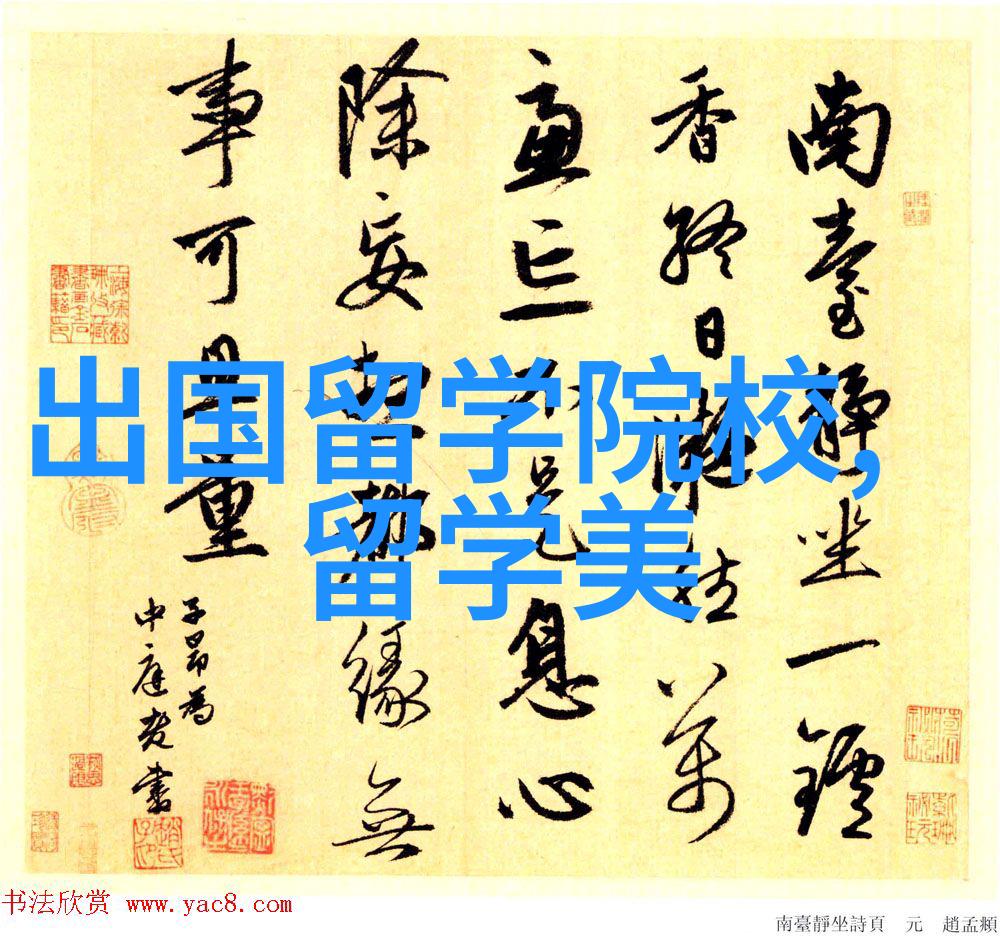 南臺靜坐一鑪
香終日凝萬
慮亡不是息心
除妄緣無
事可量
子昂為
中庭老書
出国留学院校,
留学美
书法欣赏 www.yac8.com
南臺靜坐詩頁 元 趙孟頫